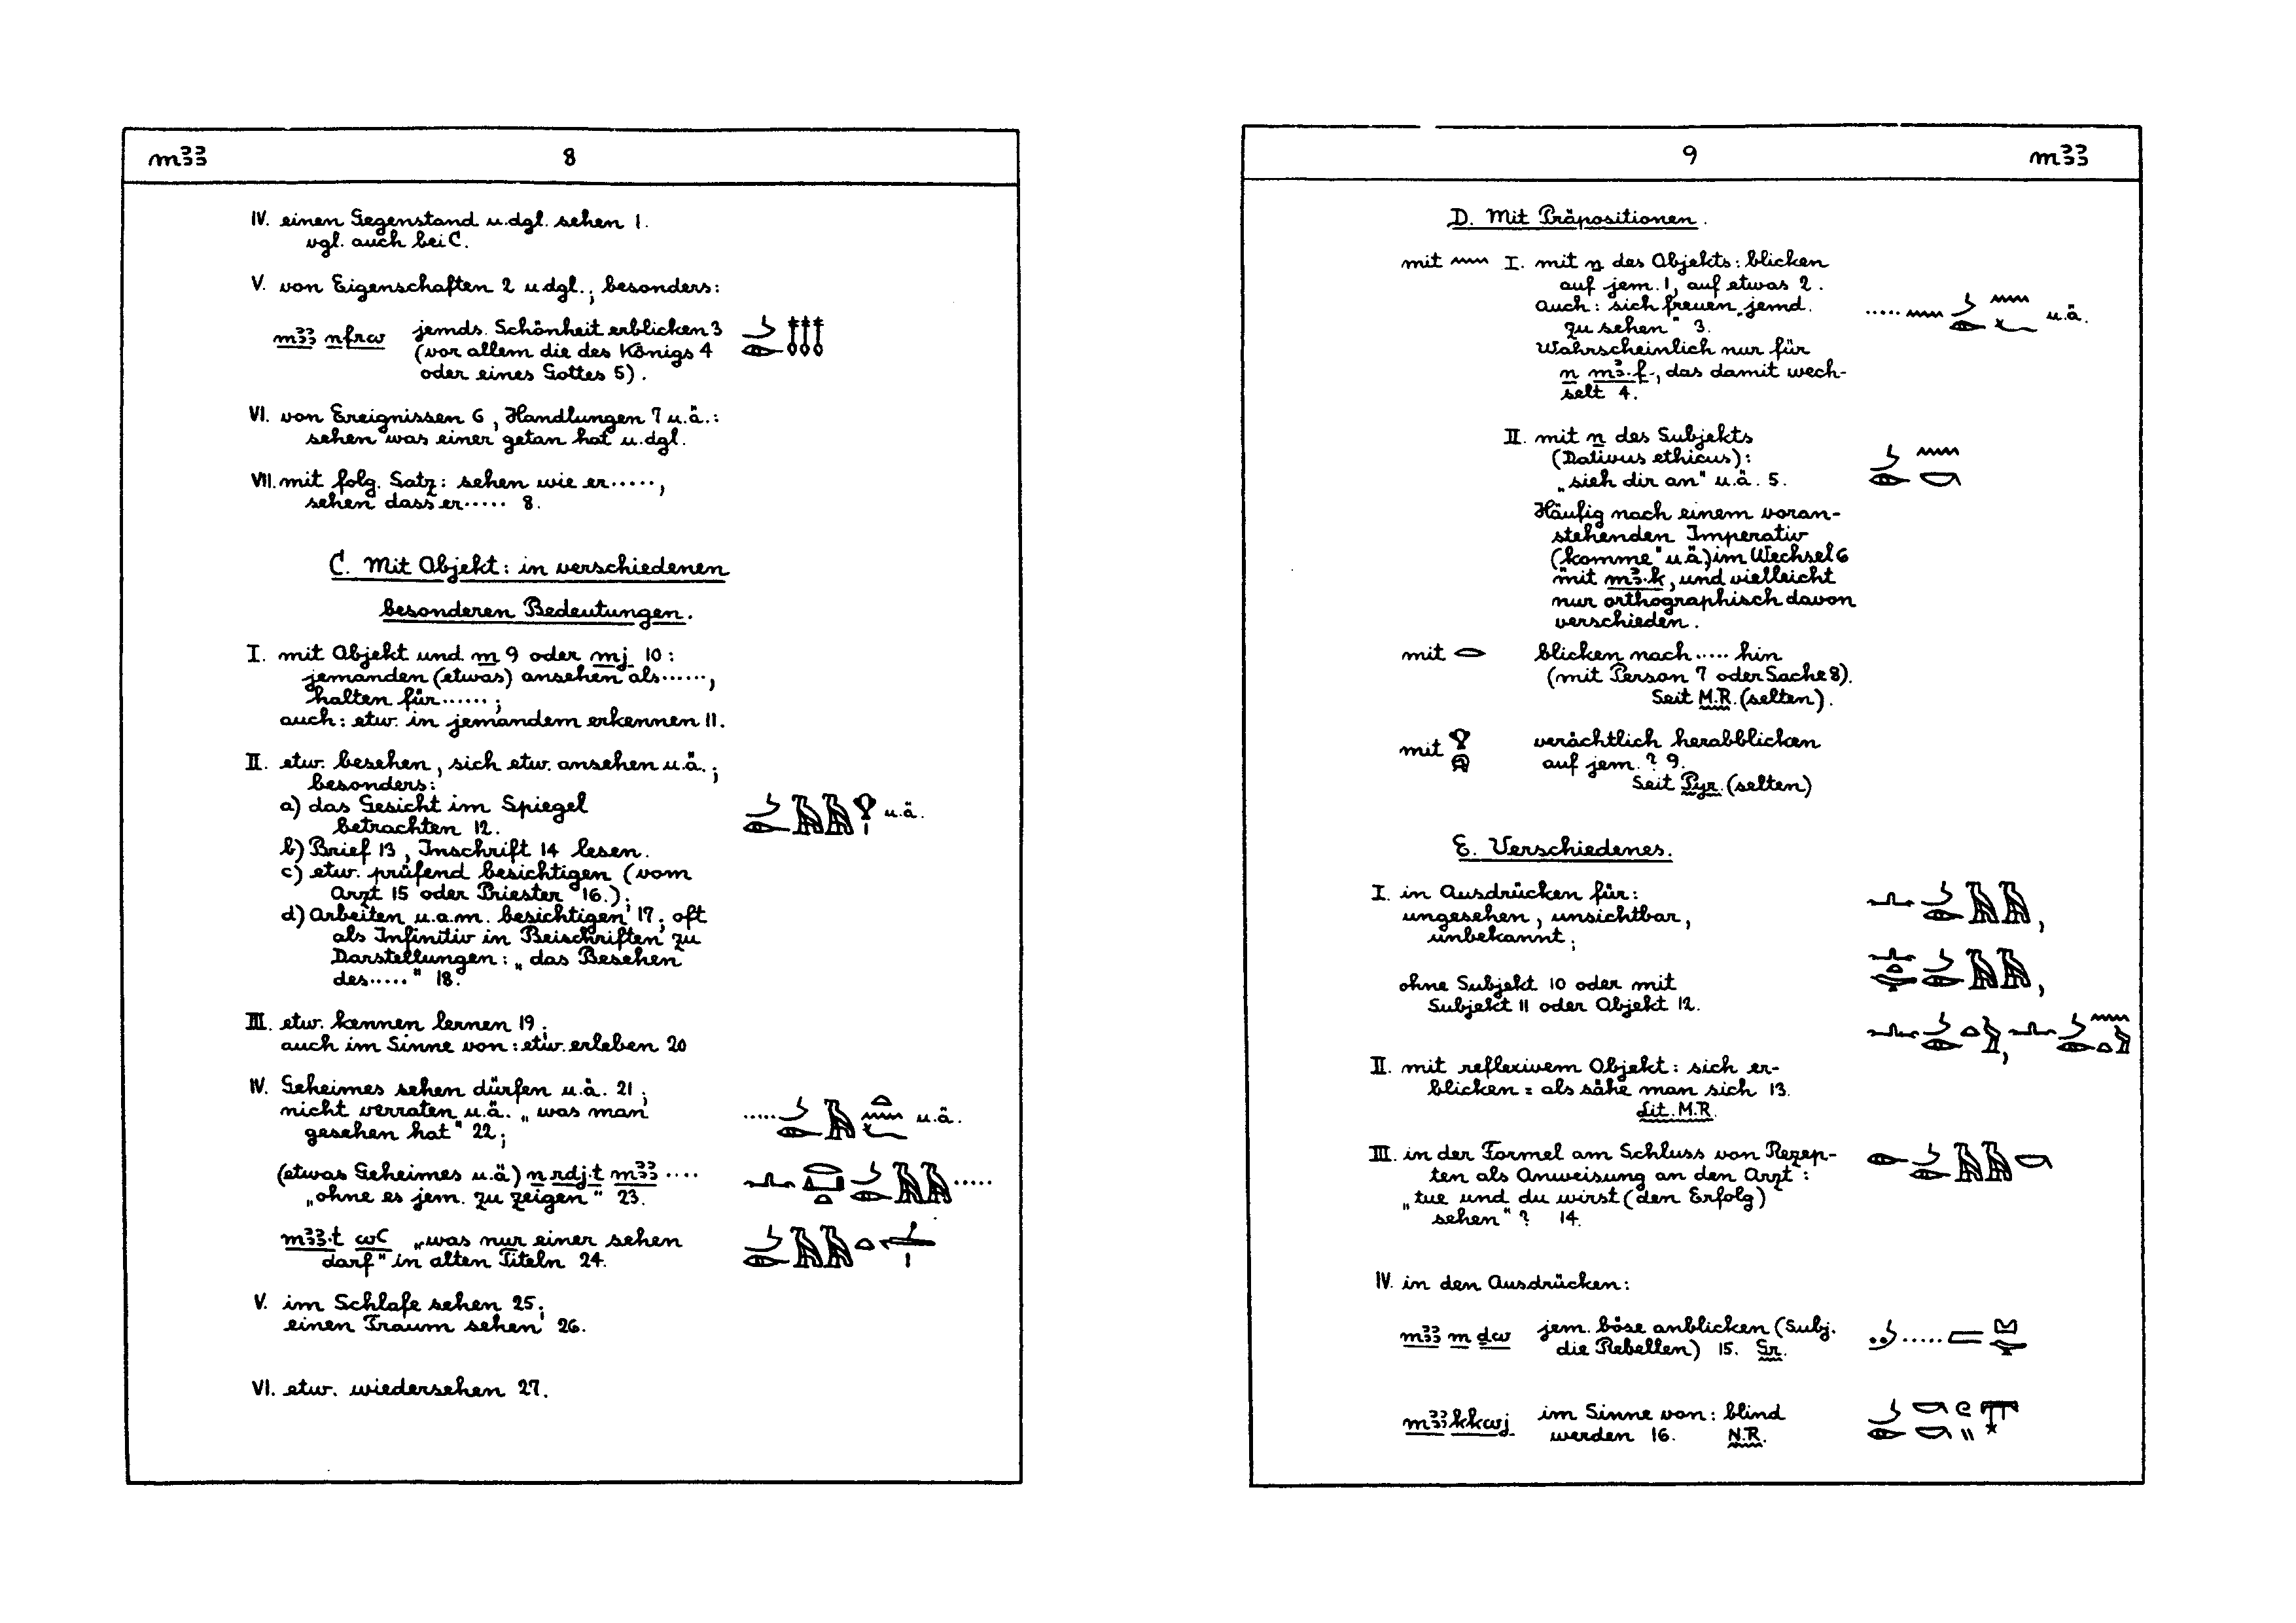 mꜣꜣ 8
IV. einen Gegenstand u.dgl. sehen 1.
vgl. auch bei C.
V. von Eigenschaften 2 u.dgl.; besonders:
mꜣꜣ nfrw jemds. Schönheit erblicken 3
(vor allem die des Königs 4
oder eines Gottes 5).
VI. von Ereignissen 6, Handlungen 7 u.ä.:
sehen was einer getan hat u.dgl.
VII. mit folg. Satz: sehen wie er ·····,
sehen dass er ····· 8.
C. Mit Objekt: in verschiedenen
besonderen Bedeutungen.
I. mit Objekt und m 9 oder mj 10:
jemanden (etwas) ansehen als ······,
halten für ······;
auch: etw. in jemandem erkennen 11.
II. etw. besehen, sich etw. ansehen u.ä.;
besonders:
a) das Gesicht im Spiegel u.ä.
betrachten 12.
b) Brief 13, Inschrift 14 lesen.
c) etw. prüfend besichtigen (vom
Arzt 15 oder Priester 16.);
d) Arbeiten u.a.m. besichtigen 17; oft
als Infinitiv in Beischriften zu
Darstellungen: „das Besehen
des ·····" 18.
III. etw. kennen lernen 19;
auch im Sinne von: etw. erleben 20
IV. Geheimes sehen dürfen u.ä. 21;
nicht verraten u.ä. „was man ····· u.ä.
gesehen hat" 22;
(etwas Geheimes u.ä) n rdj.t mꜣꜣ ···· ·····
„ohne es jem. zu zeigen" 23.
mꜣꜣ.t wꜥ „was nur einer sehen
darf" in alten Titeln 24.
V. im Schlafe sehen 25;
einen Traum sehen 26.
VI. etw. wiedersehen 27.
9 mꜣꜣ
D. Mit Präpositionen.
mit I. mit n des Objekts: blicken
auf jem. 1, auf etwas 2.
Auch: sich freuen „jemd. ····· u.ä.
zu sehen" 3.
Wahrscheinlich nur für
n mꜣ.f, das damit wech-
selt 4.
II. mit n des Subjekts
(Dativus ethicus):
„sieh dir an" u.ä. 5.
Häufig nach einem voran-
stehenden Imperativ
(„komme" u.ä.) im Wechsel 6
mit mꜣ.k, und vielleicht
nur orthographisch davon
verschieden.
mit blicken nach ····· hin
(mit Person 7 oder Sache 8).
Seit M.R. (selten).
mit verächtlich herabblicken
auf jem.? 9.
Seit Pyr. (selten)
E. Verschiedenes.
I. in Ausdrücken für:
ungesehen, unsichtbar,
unbekannt;
ohne Subjekt 10 oder mit
Subjekt 11 oder Objekt 12.
II. mit reflexivem Objekt: sich er-
blicken = als sähe man sich 13.
Lit. M.R.
III. in der Formel am Schluss von Rezep-
ten als Anweisung an den Arzt:
„tue und du wirst (den Erfolg)
sehen"? 14.
IV. in den Ausdrücken:
mꜣꜣ m dw jem. böse anblicken (Subj. ·····
die Rebellen) 15. Gr.
mꜣꜣ kkwj im Sinne von: blind
werden 16. N.R.